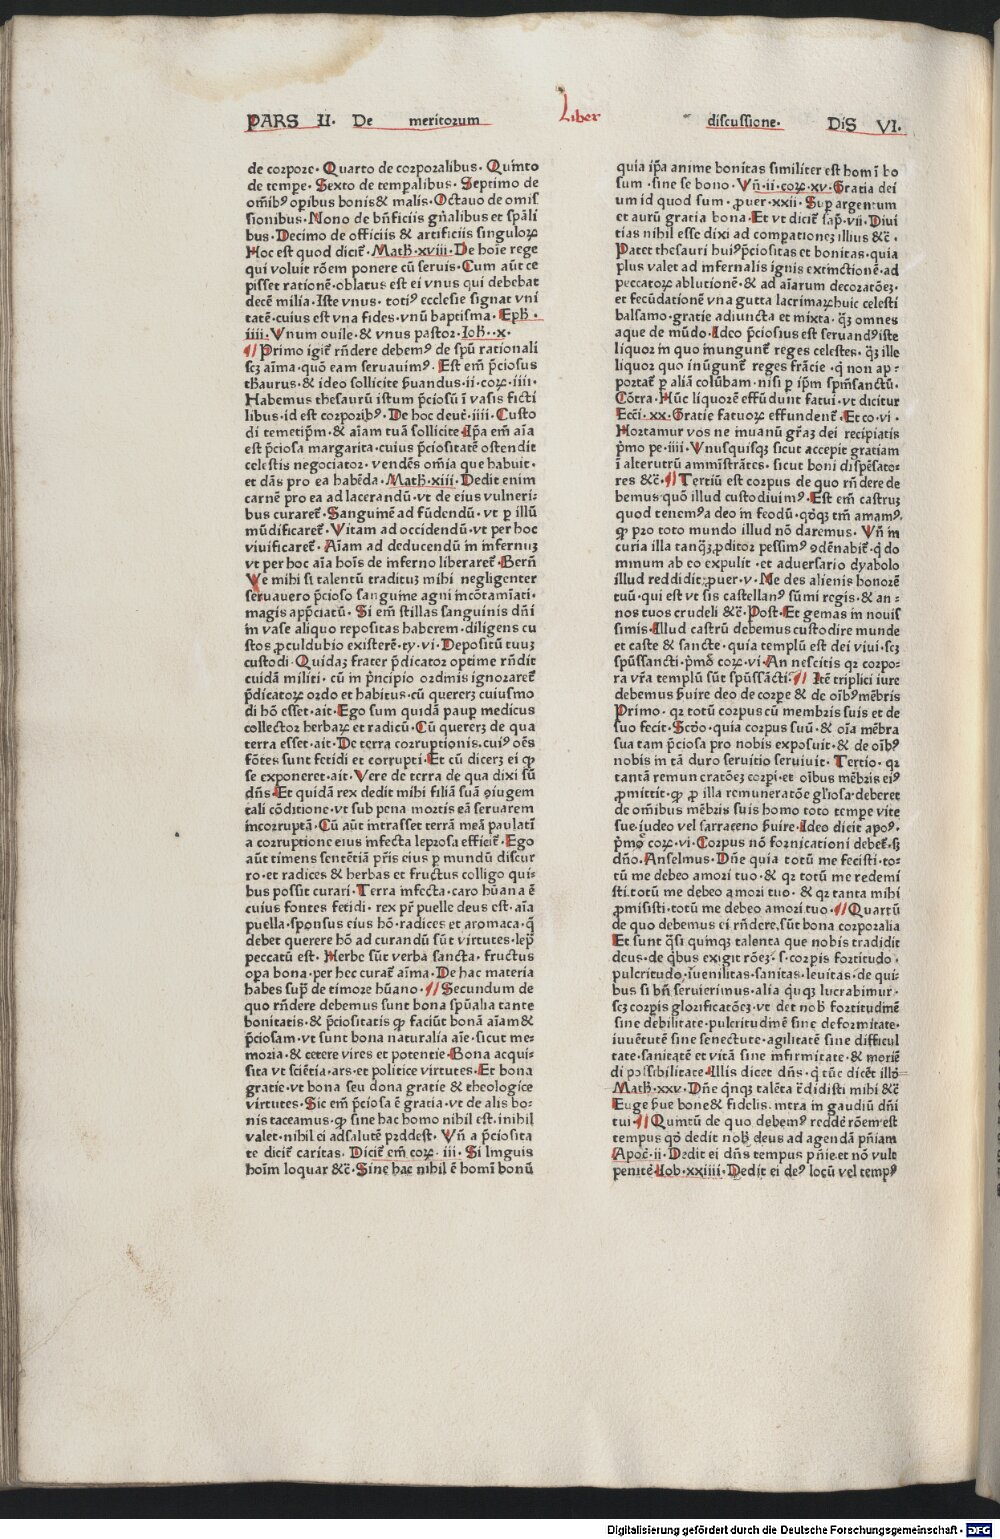 PARS II. De meritorum Liber discussione. DIS VI.
de corpore. Quarto de corporalibus. Quinto
de tempe. Sexto de tempalibus. Septimo de
om̄ibꝰ opibus bonis & malis. Octauo de omis
sionibus. Nono de bn̄ficiis gn̄alibus et sp̄ali
bus. Decimo de officiis & artificiis singuloꝝ
Hoc est quod dicit̄. Math̄. xviii. De hoīe rege
qui voluit rōem ponere cū seruis. Cum aūt ce
pisset rationē. oblatus est ei vnus qui debebat
decē milia. Iste vnus. totiꝰ ecclesie signat vni
tatē. cuius est vna fides. vnū baptisma. Eph̄.
iiii. Vnum ouile. & vnus pastor. Ioh̄. .x.
¶ Primo igit̄ rn̄dere debemꝰ de spū rationali
scꝫ aīma. quō eam seruauimꝰ. Est em̄ p̄ciosus
th̄aurus. & ideo sollicite ẜuandus. ii. coꝝ. iiii.
Habemus thesaurū istum p̄ciosū ī vasis ficti
libus. id est corporibꝰ. De hoc deut̄. iiii. Custo
di temetip̄m. & aīam tuā sollicite. Ip̄a em̄ aīa
est p̄ciosa margarita. cuius p̄ciositatē ostendit
celestis negociator. vendēs om̄ia que habuit.
et dās pro ea habēda. Math̄. xiii. Dedit enim
carnē pro ea ad lacerandū. vt de eius vulneri⸗
bus curaret̄. Sanguinē ad fūdendū. vt ꝑ illū
mūdificaret̄. Vitam ad occidendū. vt per hoc
viuificaret̄. Aīam ad deducendū in infernuꝫ
vt per hoc aīa hoīs de inferno liberaret̄. Bern̄
Ve mihi si talentū tradituꝫ mihi negligenter
seruauero p̄cioso sanguine agni incōtamīati.
magis app̄ciatū. Si em̄ stillas sanguinis dn̄i
in vase aliquo repositas haberem. diligens cu
stos ꝓculdubio existerē. ty. vi. Depositū tuuꝫ
custodi. Quidaꝫ frater p̄dicator optime rn̄dit
cuidā militi. cū in p̄ncipio ordinis ignoraret̄
p̄dicatoꝝ ordo et habitus. cū quererꝫ cuiusmo
di hō esset. ait. Ego sum quidā paup medicus
collector herbaꝝ et radicū. Cū quererꝫ de qua
terra esset. ait. De terra corruptionis. cuiꝰ oēs
fōtes sunt fetidi et corrupti. Et cū dicerꝫ ei ꝙ
se exponeret. ait. Vere de terra de qua dixi sū
dn̄s. Et quidā rex dedit mihi filiā suā ꝯiugem
tali cōditione. vt sub pena mortis eā seruarem
incorruptā. Cū aūt intrasset terrā meā paulatī
a corruptione eius infecta leprosa efficit̄. Ego
aūt timens sentētiā pr̄is eius ꝑ mundū discur
ro. et radices & herbas et fructus colligo qui⸗
bus possit curari. Terra infecta. caro hūana ē
cuius fontes fetidi. rex pr̄ puelle deus est. aīa
puella. sponsus eius hō. radices et aromaca. q̄
debet querere hō ad curandū sūt virtutes. lep̄
peccatū est. Herbe sūt verba sancta. fructus
opa bona. per hec curat̄ aīma. De hac materia
habes sup̄ de timore hūano. ¶ Secundum de
quo rn̄dere debemus sunt bona spūalia tante
bonitatis. & p̄ciositatis ꝙ faciūt bonā aīam &
p̄ciosam. vt sunt bona naturalia aīe. sicut me⸗
moria. & cetere vires et potentie. Bona acqui⸗
sita vt sciētia. ars. et politice virtutes. Et bona
gratie. vt bona seu dona gratie & theologice
virtutes. Sic em̄ p̄ciosa ē gratia. vt de alis bo⸗
nis taceamus. ꝙ sine hac homo nihil est. inihil
valet. nihil ei ad salutē pꝛddest. Vn̄ a p̄ciosita
te dicit̄ caritas. Dicit̄ em̄ coꝝ. iii. Si linguis
hoīm loquar &c̄. Sine hac nihil ē homī bonū
quia ip̄a anime bonitas similiter est homī bo
sum. sine se bono. Vn̄. ii. coꝝ. xv. Gratia dei
um id quod sum. ꝓuer. xxii. Sup argentum
et aurū gratia bona. Et vt dicit̄ sap̄. vii. Diui
tias nihil esse dixi ad compationeꝫ illius &c̄.
Patet thesauri huiꝰ p̄ciositas et bonitas. quia
plus valet ad infernalis ignis extinctionē. ad
peccatoꝝ ablutionē. & ad aīarum decoratōeꝫ.
et fecūdationē vna gutta lacrimaꝝ huic celesti
balsamo. gratie adiuncta et mixta. qꝫ omnes
aque de mūdo. Ideo p̄ciosius est seruandꝰ iste
liquor in quo inungunt̄ reges celestes. qꝫ ille
liquor quo inūgunt̄ reges frācie. q̄ non ap⸗
portat̄ ꝑ aliā colūbam. nisi ꝑ ip̄m spm̄ sanctū.
Cōtra. Hūc liquorē effūdunt fatui. vt dicitur
Ecci. xx. Gratie fatuoꝝ effundent̄. Et co. vi.
Hortamur vos ne inuanū grāꝫ dei recipiatis
p̄mo pe. iiii. Vnusquisqꝫ sicut accepit gratiam
ī alterutrū amministrātes. sicut boni dispēsato⸗
res &c̄. ¶ Tertiū est corpus de quo rn̄dere de
bemus quō illud custodiuimꝰ. Est em̄ castruꝫ
quod tenemꝰ a deo in feodū. qd̄qꝫ tm̄ amamꝰ.
ꝙ pro toto mundo illud nō daremus. Vn̄ in
curia illa tanqꝫ ꝓditor pessimꝰ ꝯdēnabit̄. q̄ do
minum ab eo expulit. et aduersario dyabolo
illud reddidit. ꝓuer. v. Ne des alienis honorē
tuū. qui est vt sis castellanꝰ sūmi regis. & an⸗
nos tuos crudeli &c̄. Post. Et gemas in nouis
simis. Illud castrū debemus custodire munde
et caste & sancte. quia templū est dei viui. scꝫ
spūssancti. p̄mō coꝝ. vi. An nescitis qꝛ corpo⸗
ra vr̄a templū sūt spūssācti. ¶ Itē triplici iure
debemus ẜuire deo de corpe & de oībꝰ mēbris
Primo. qꝛ totū corpus cū membris suis et de
suo fecit. Scd̄o. quia corpus suū. & oīa mēbra
sua tam p̄ciosa pro nobis exposuit. & de oībꝰ
nobis in tā duro seruitio seruiuit. Tertio. qꝛ
tantā remuneratōeꝫ corpi. et oībus mēbris eiꝰ
ꝓmittit. ꝙ ꝓ illa remuneratōe gl̄iosa. deberet
de om̄ibus mēbris suis homo toto tempe vite
sue iudeo vel sarraceno ẜuire. Ideo dicit apoꝰ.
p̄mo coꝝ. vi. Corpus nō fornicationi debet̄. sꝫ
dn̄o. Anselmus. Dn̄e quia totū me fecisti. to⸗
tū me debeo amori tuo. & qꝛ totū me redemi
sti. totū me debeo amori tuo. & qꝛ tanta mihi
ꝓmisisti. totū me debeo amori tuo. ¶ Quartū
de quo debemus ei rn̄dere. sūt bona corporalia
Et sunt q̄si quinqꝫ talenta que nobis tradidit
deus. de qbus exigit rōeꝫ. s. corpis fortitudo.
pulcritudo. iuuenilitas. sanitas. leuitas. de qui⸗
bus si bn̄ seruierimus. alia quīqꝫ lucrabimur.
scꝫ corpis glorificatōeꝫ. vt det nob̄ fortitudinē
sine debilitate. pulcritudinē sine deformitate.
iuuētutē sine senectute. agilitatē sine difficul
tate. sanitatē et vitā sine infirmitate. & moriē
di possibilitate. Illis dicet dn̄s. q̄ tūc dicēt illō
Math̄. xxv. Dn̄e qnqꝫ talēta t̄didisti mihi &c̄
Euge ẜue bone & fidelis. intra in gaudiū dn̄i
tui. ¶ Quintū de quo debemꝰ reddē rōem est
tempus qd̄ dedit nob̄ deus ad agendā pn̄iam
Apoc̄. ii. Dedit ei dn̄s tempus pn̄ie. et nō vult
penitē. Iob. xxiiii. Dedit ei deꝰ locū vel tempꝰ
Digitalisierung gefördert durch die Deutsche Forschungsgemeinschaft - DFG